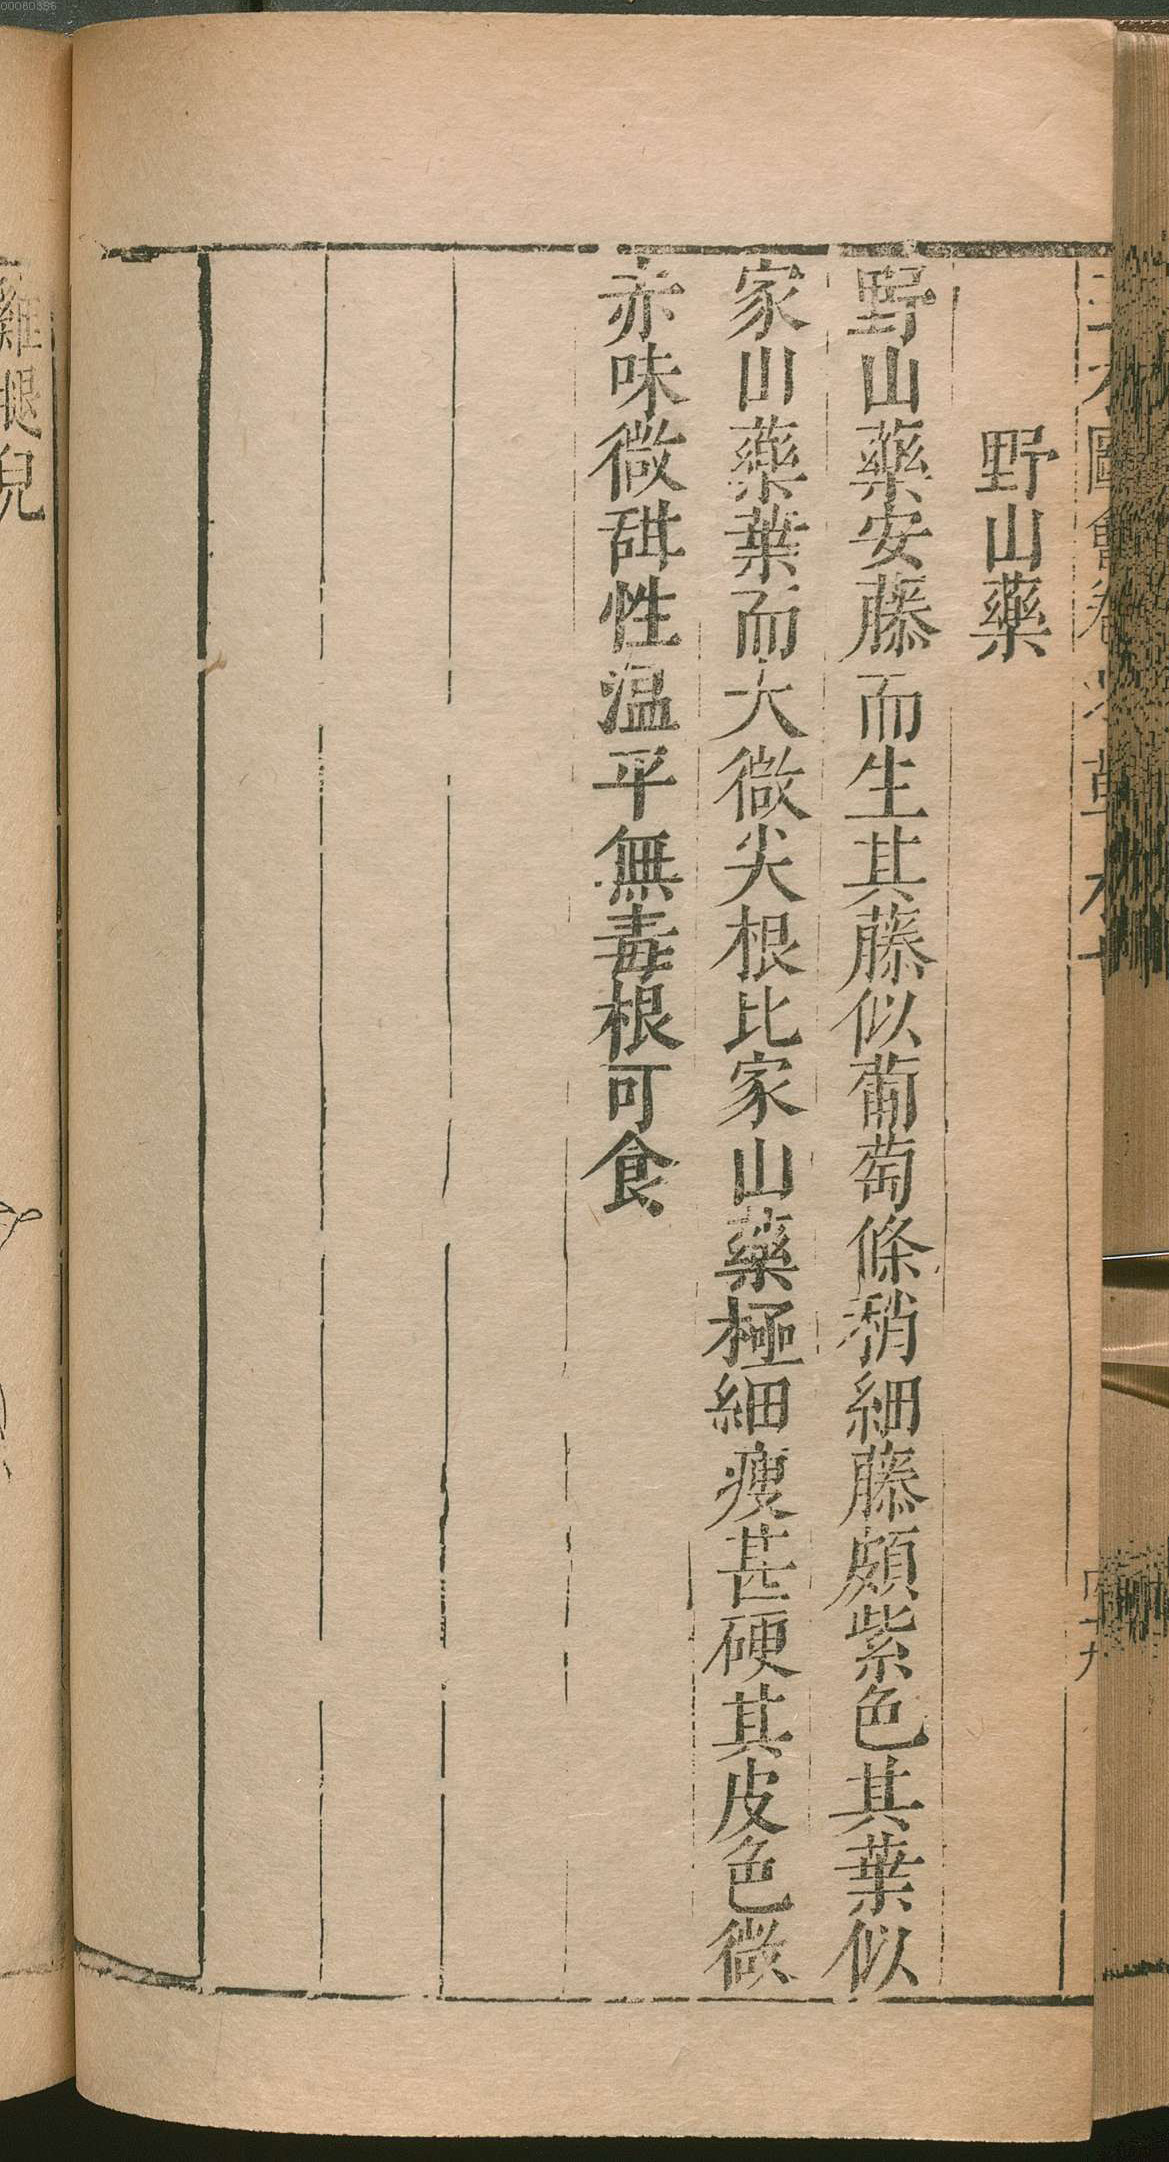 00080356
野山藥
野山藥安藤而生其藤似葡萄條稍細藤頗紫色其葉似
家山藥葉而大微尖根比家山藥極細瘦甚硬其皮色微
赤味微甜性温平無毒根可食
雞腿兒